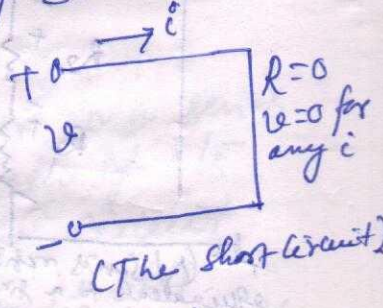 i
+
R=0
v
v=0 for
any i
-
(The short circuit)